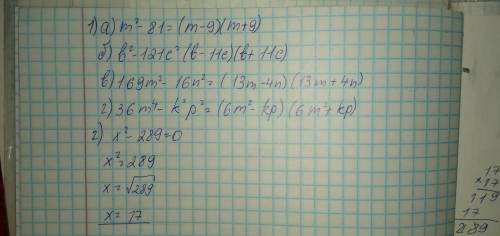 1) а) m² - 81 = (m-9)(m+9)
б) b² - 121c² (b - 11c)(b + 11c)
в) 169m² - 16n² = (13m - 4n)(13m + 4n)
г) 36m⁴ - k²p² = (6m² - kp)(6m² + kp)
2) x² - 289 = 0
x² = 289
x = √289
x = 17
17
× 17
119
17
289